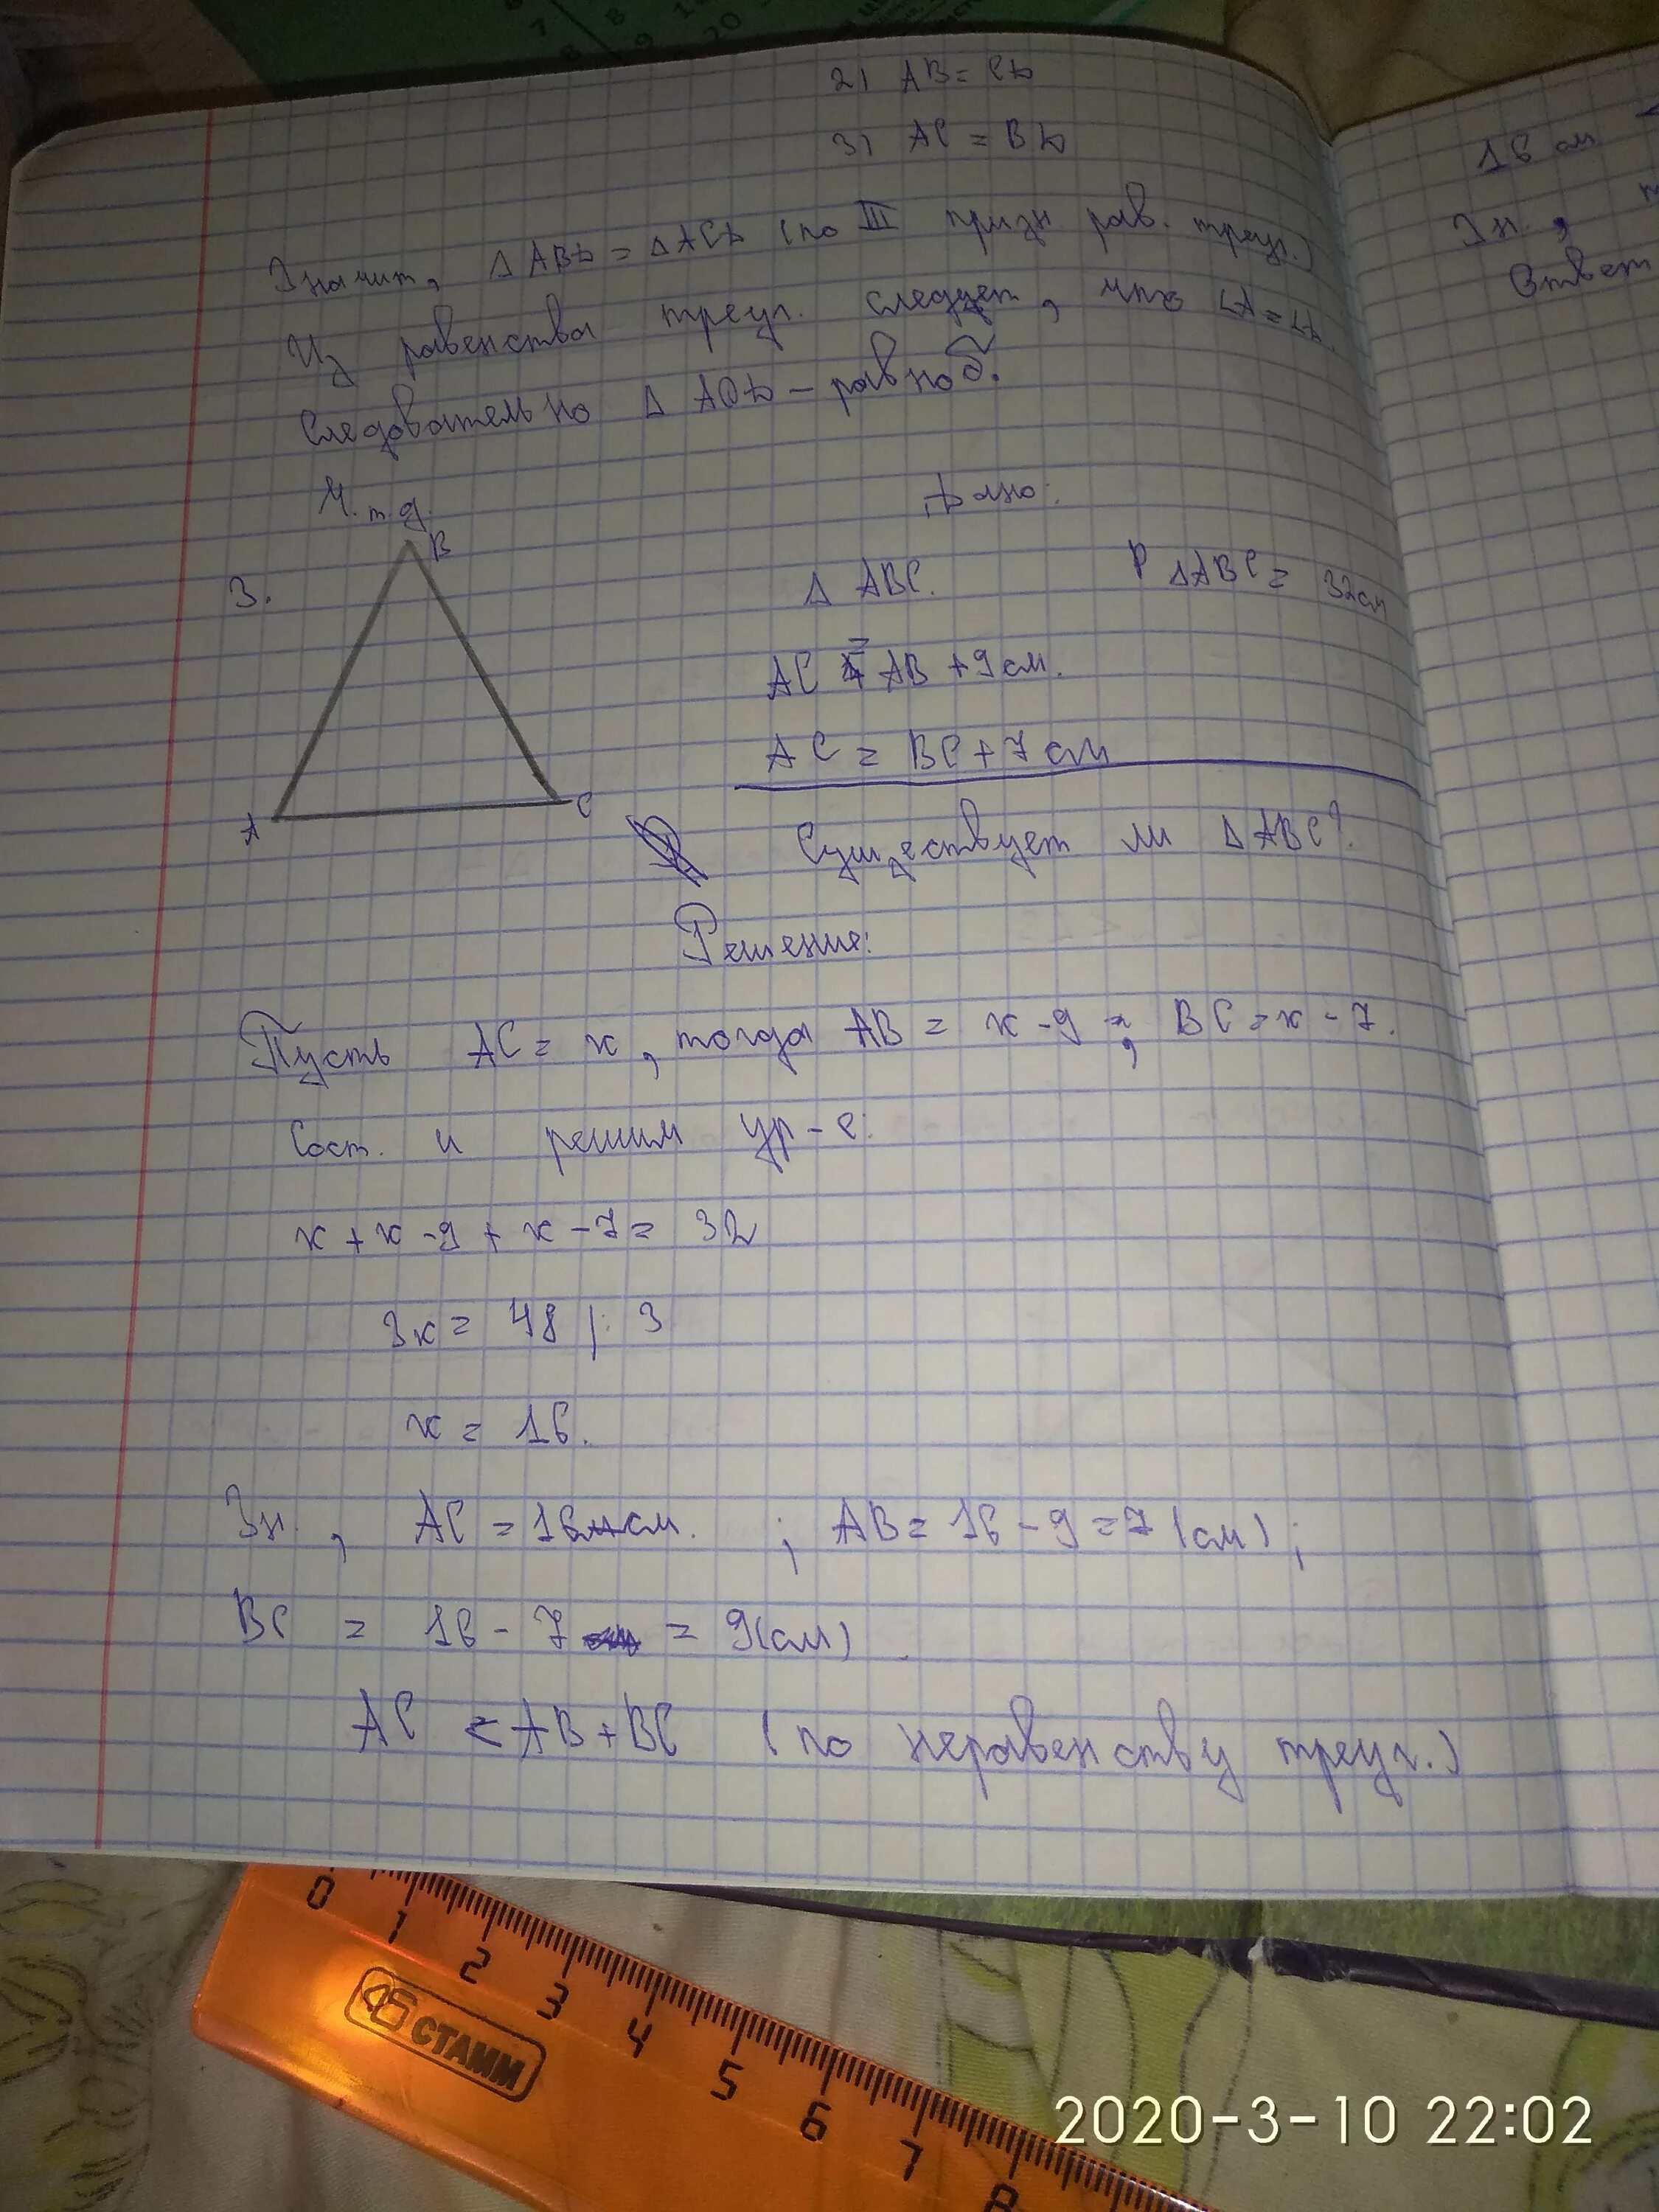 2) AB = CD
3) AC = BD
Значит, Δ ABD = ΔACD (по III призн. рав. треуг.)
Из равенства треуг. следует, что ∠A = ∠D.
Следовательно Δ AOD - равноб.
Ч.т.д.
3.
B
A
C
Дано:
Δ ABC. P ΔABC = 32см
AC = AB + 9 см.
AC = BC + 7 см
Существует ли Δ ABC?
Решение:
Пусть AC = x, тогда AB = x - 9 ; BC = x - 7.
Сост. и решим ур-е:
x + x - 9 + x - 7 = 32
3x = 48 | : 3
x = 16.
Зн., AC = 16 см. ; AB = 16 - 9 = 7 (см) ;
BC = 16 - 7 = 9 (см)
AC < AB + BC (по неравенству треуг.)
16 см
Зн.,
Ответ
7 8
8 9
20
0 1 2 3 4 5 6 7 8
СТАММ
2020-3-10 22:02